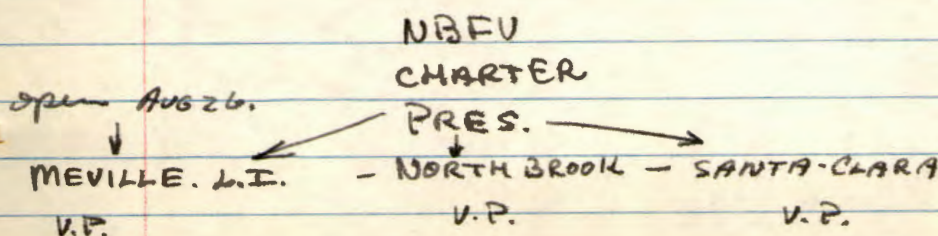 NBFU
CHARTER
open AUG 26.
PRES.
MEVILLE. L.I. - NORTH BROOK - SANTA-CLARA
V.P. V.P. V.P.